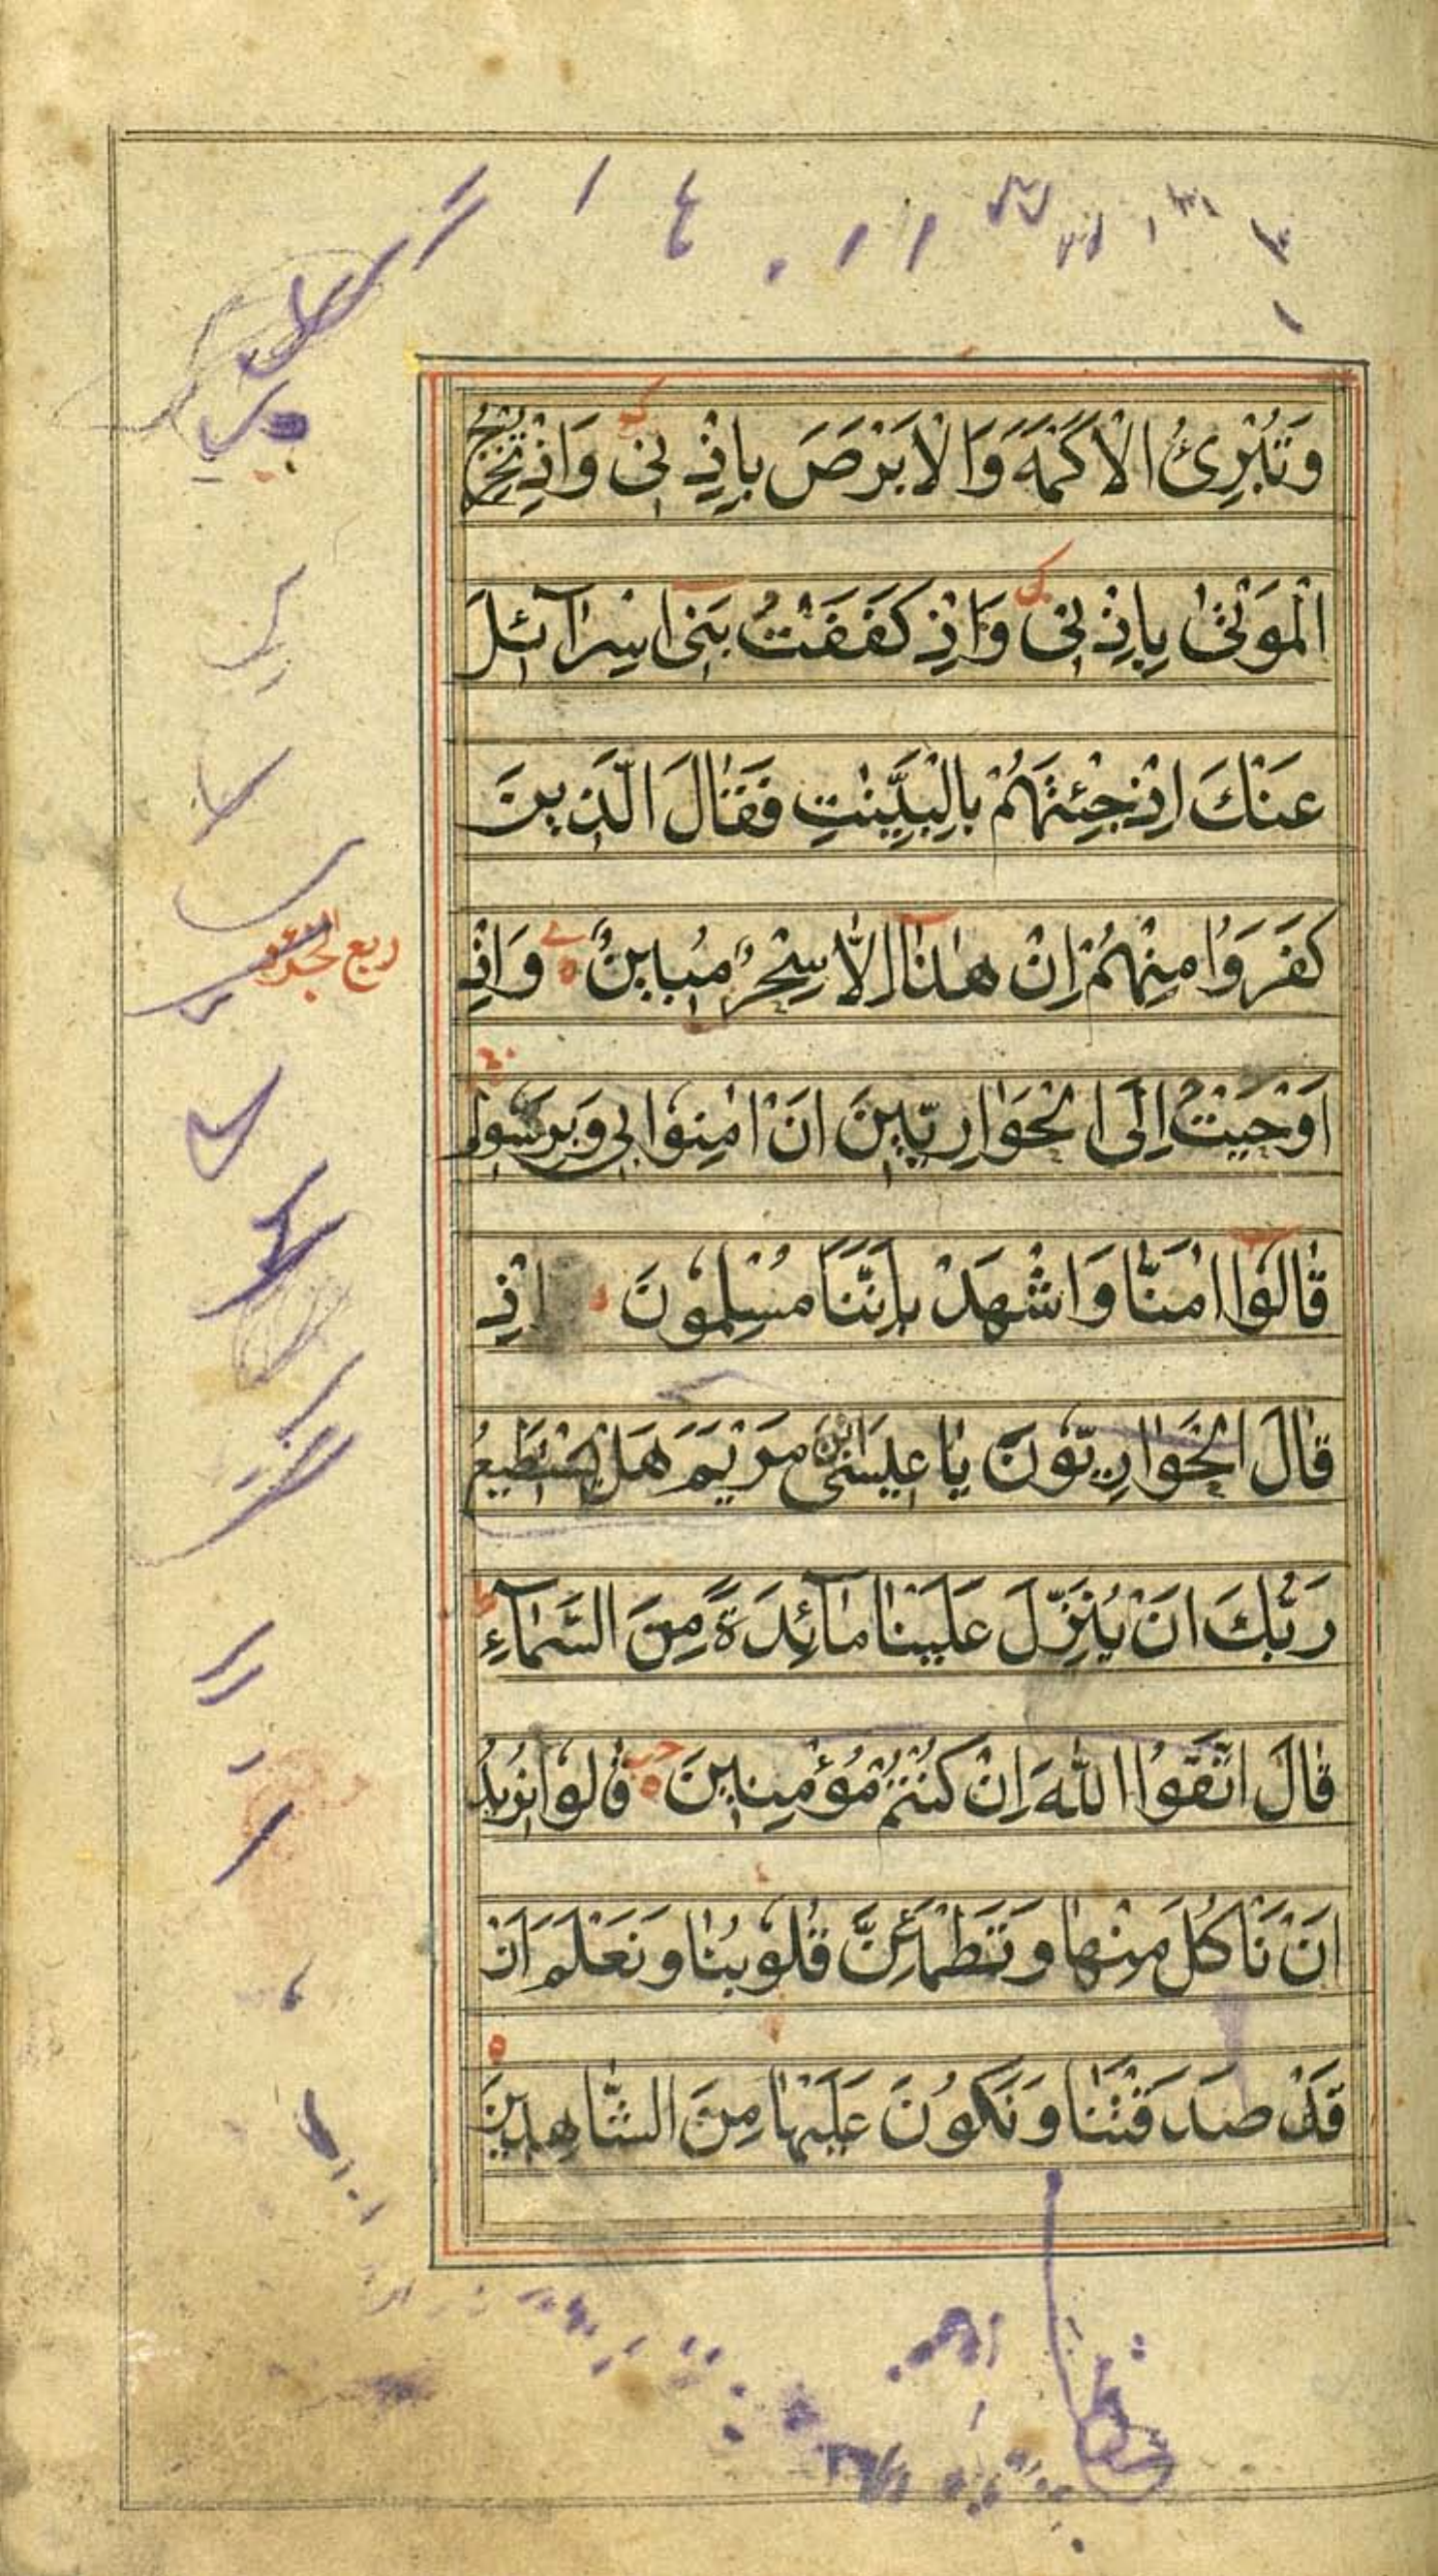 وَتُبْرِئُ الْاَكْمَهَ وَالْاَبْرَصَ بِاِذْنِیْ وَاِذْ تُخْرِجُ
الْمَوْتٰی بِاِذْنِیْ وَاِذْ كَفَفْتُ بَنِیْ اِسْرَآئلَ
عَنْكَ اِذْ جِئْتَهُمْ بِالْبَيِّنٰتِ فَقَالَ الَّذِينَ
كَفَرُوْا مِنْهُمْ اِنْ هٰذَا اِلَّا سِحْرٌ مُبِينٌ وَاِذْ
ربع الجزو
اَوْحَيْتُ اِلَی الْحَوَارِيّٖينَ اَنْ اٰمِنُوْا بِی وَبِرَسُولِی
قَالُوْا اٰمَنَّا وَاشْهَدْ بِاَنَّنَا مُسْلِمُوْنَ اِذْ
قَالَ الْحَوَارِيّٖوْنَ يَا عِيسَی ابْنَ مَرْيَمَ هَلْ يَسْتَطِيعُ
رَبُّكَ اَنْ يُنَزِّلَ عَلَيْنَا مَآئِدَةً مِنَ السَّمَآءِ
قَالَ اتَّقُوْا اللّٰهَ اِنْ كُنْتُمْ مُؤْمِنِينَ قَالُوْا نُرِيْدُ
اَنْ نَاْكُلَ مِنْهَا وَتَطْمَئِنَّ قُلُوْبُنَا وَنَعْلَمَ اَنْ
قَدْ صَدَقْتَنَا وَنَكُوْنَ عَلَيْهَا مِنَ الشَّاهِدِينَ